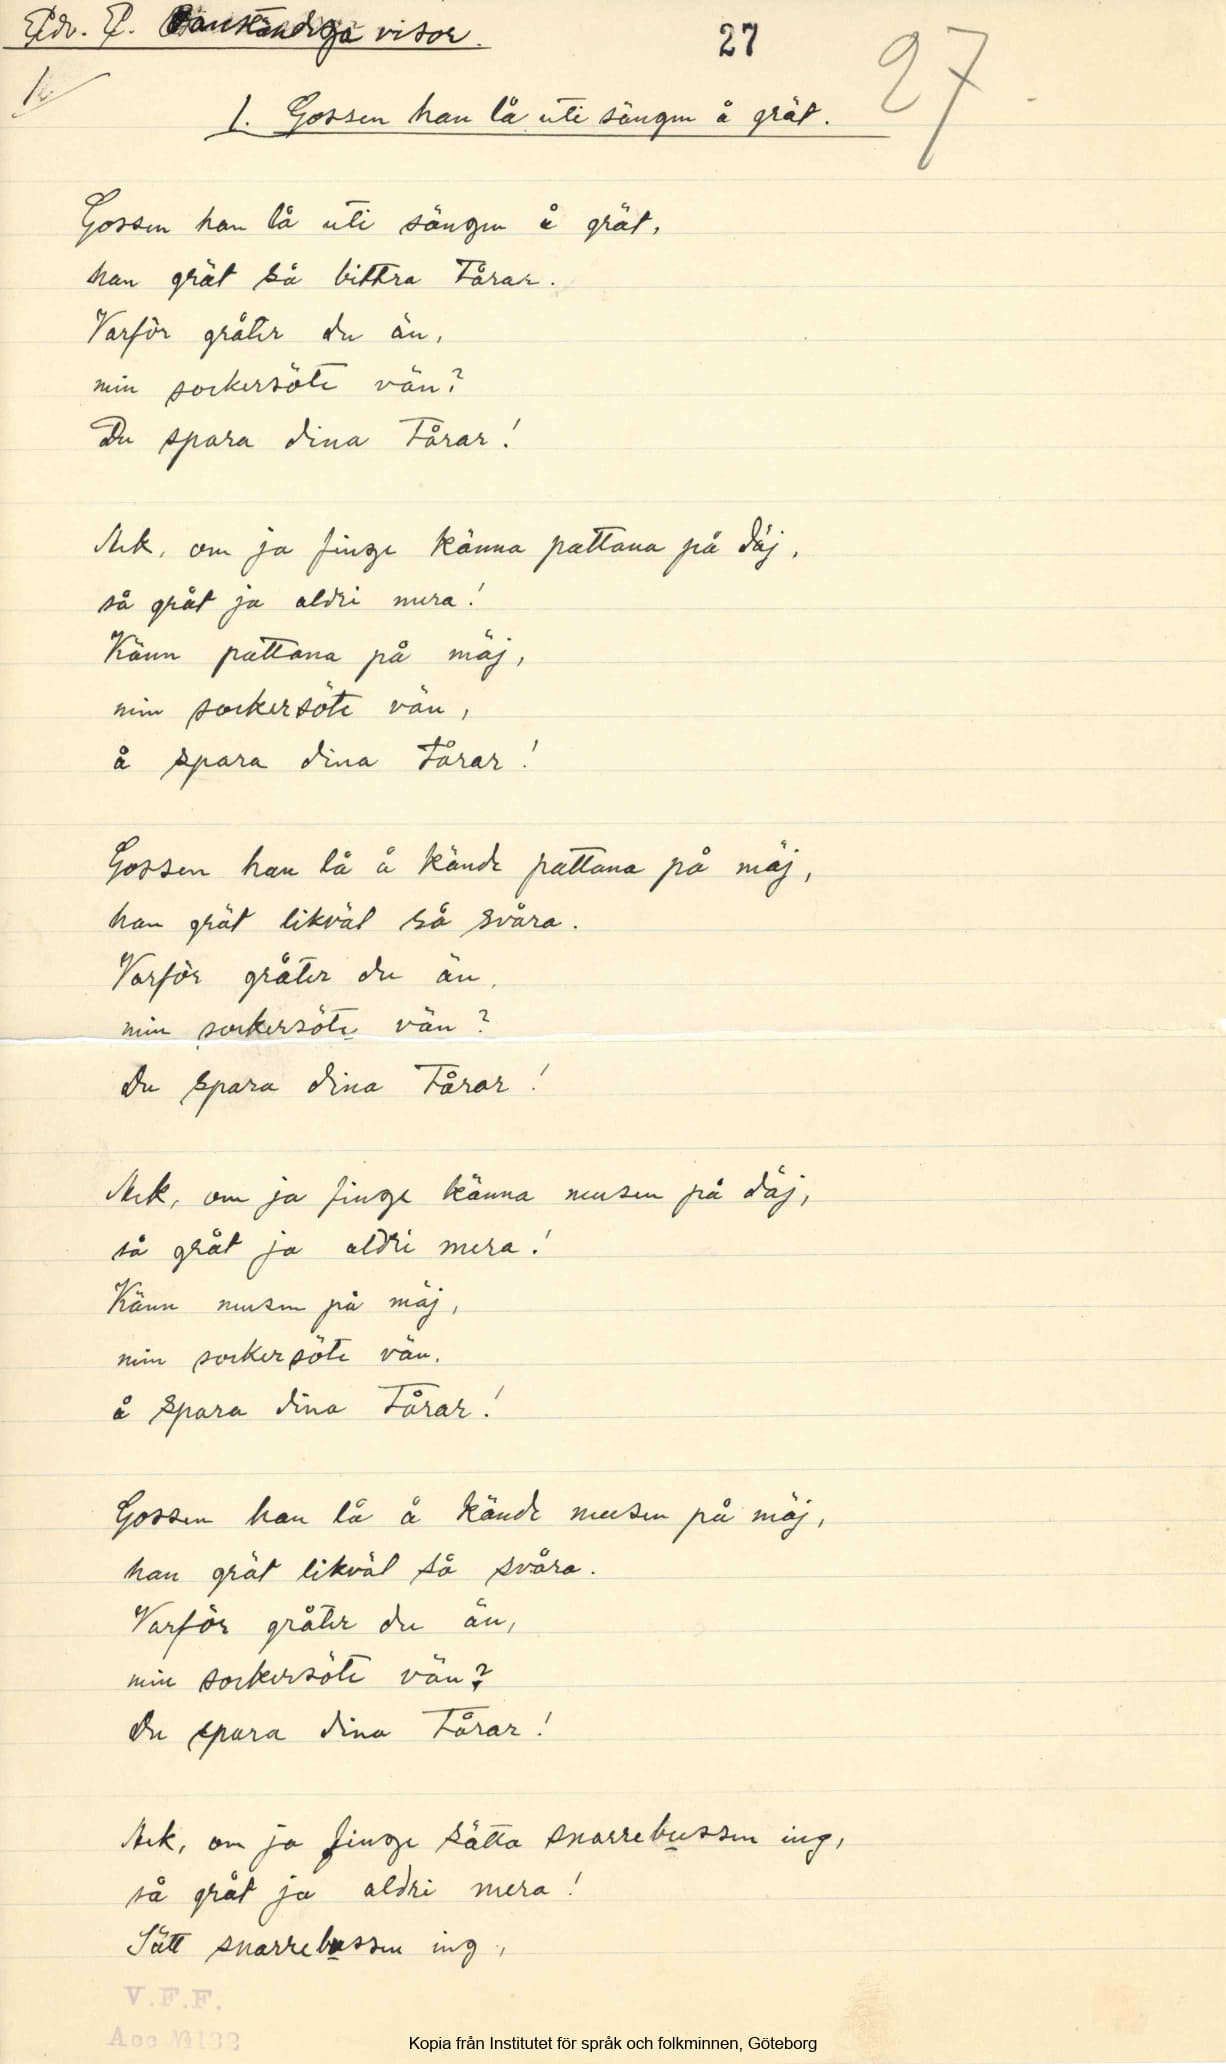 Edv. P. Oanständga visor.
27
27
1.
1. Gossen han lå uti sängen å grät.
Gossen han lå uti sängen å grät,
han grät så bittra tårar.
Varför gråter du än,
min sockersöte vän?
Du spara dina tårar!
Ack, om ja finge känna pattana på däj,
så gråt ja aldri mera!
Känn pattana på mäj,
min sockersöte vän,
å spara dina tårar!
Gossen han lå å kände pattana på mäj,
han grät likväl så svåra.
Varför gråter du än,
min sockersöte vän?
Du spara dina tårar!
Ack, om ja finge känna musen på däj,
så gråt ja aldri mera!
Känn musen på mäj,
min sockersöte vän,
å spara dina tårar!
Gossen han lå å kände musen på mäj,
han grät likväl så svåra.
Varför gråter du än,
min sockersöte vän?
Du spara dina tårar!
Ack, om ja finge sätta snarrebussen ing,
så gråt ja aldri mera!
Sätt snarrebussen ing,
V.F.F.
Acc №
Kopia från Institutet för språk och folkminnen, Göteborg